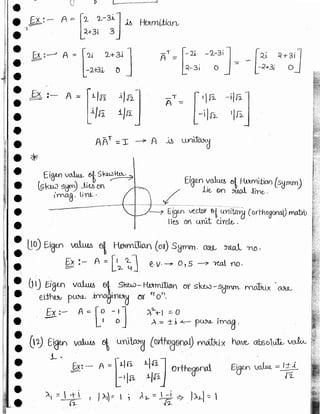 Ex:- A = [2 2-3i; 2+3i 3] is Hermitian.
Ex:- A = [2i 2+3i; -2+3i 0] A̅ᵀ = [-2i -2-3i; 2-3i 0] = - [2i 2+3i; -2+3i 0]
Ex:- A = [1/√2 i/√2; i/√2 1/√2] A̅ᵀ = [1/√2 -i/√2; -i/√2 1/√2]
AA̅ᵀ = I → A is unitary
*
Eigen value of Skew Her.
(skew sym) lies on
imag. line.
Eigen values of Hermitian (symm)
lie on real line.
→ Eigen vector of unitary (orthogonal) matrix
lies on unit circle.
(10) Eigen values of Hermitian (or) Symm. are real no.
Ex:- A = [1 2; 2 4] e.v. → 0, 5 → real no.
(11) Eigen values of Skew-Hermitian or skew-symm matrix are
either pure imaginary or "0".
Ex:- A = [0 -1; 1 0] λ²+1 = 0
λ = ±i ← pure imag.
(12) Eigen values of unitary (orthogonal) matrix have absolute value
1.
Ex:- A = [1/√2 1/√2; -1/√2 1/√2] orthogonal Eigen value = 1±i/√2
λ₁ = 1+i/√2, |λ₁| = 1 ; λ₂ = 1-i/√2 ⇒ |λ₂| = 1